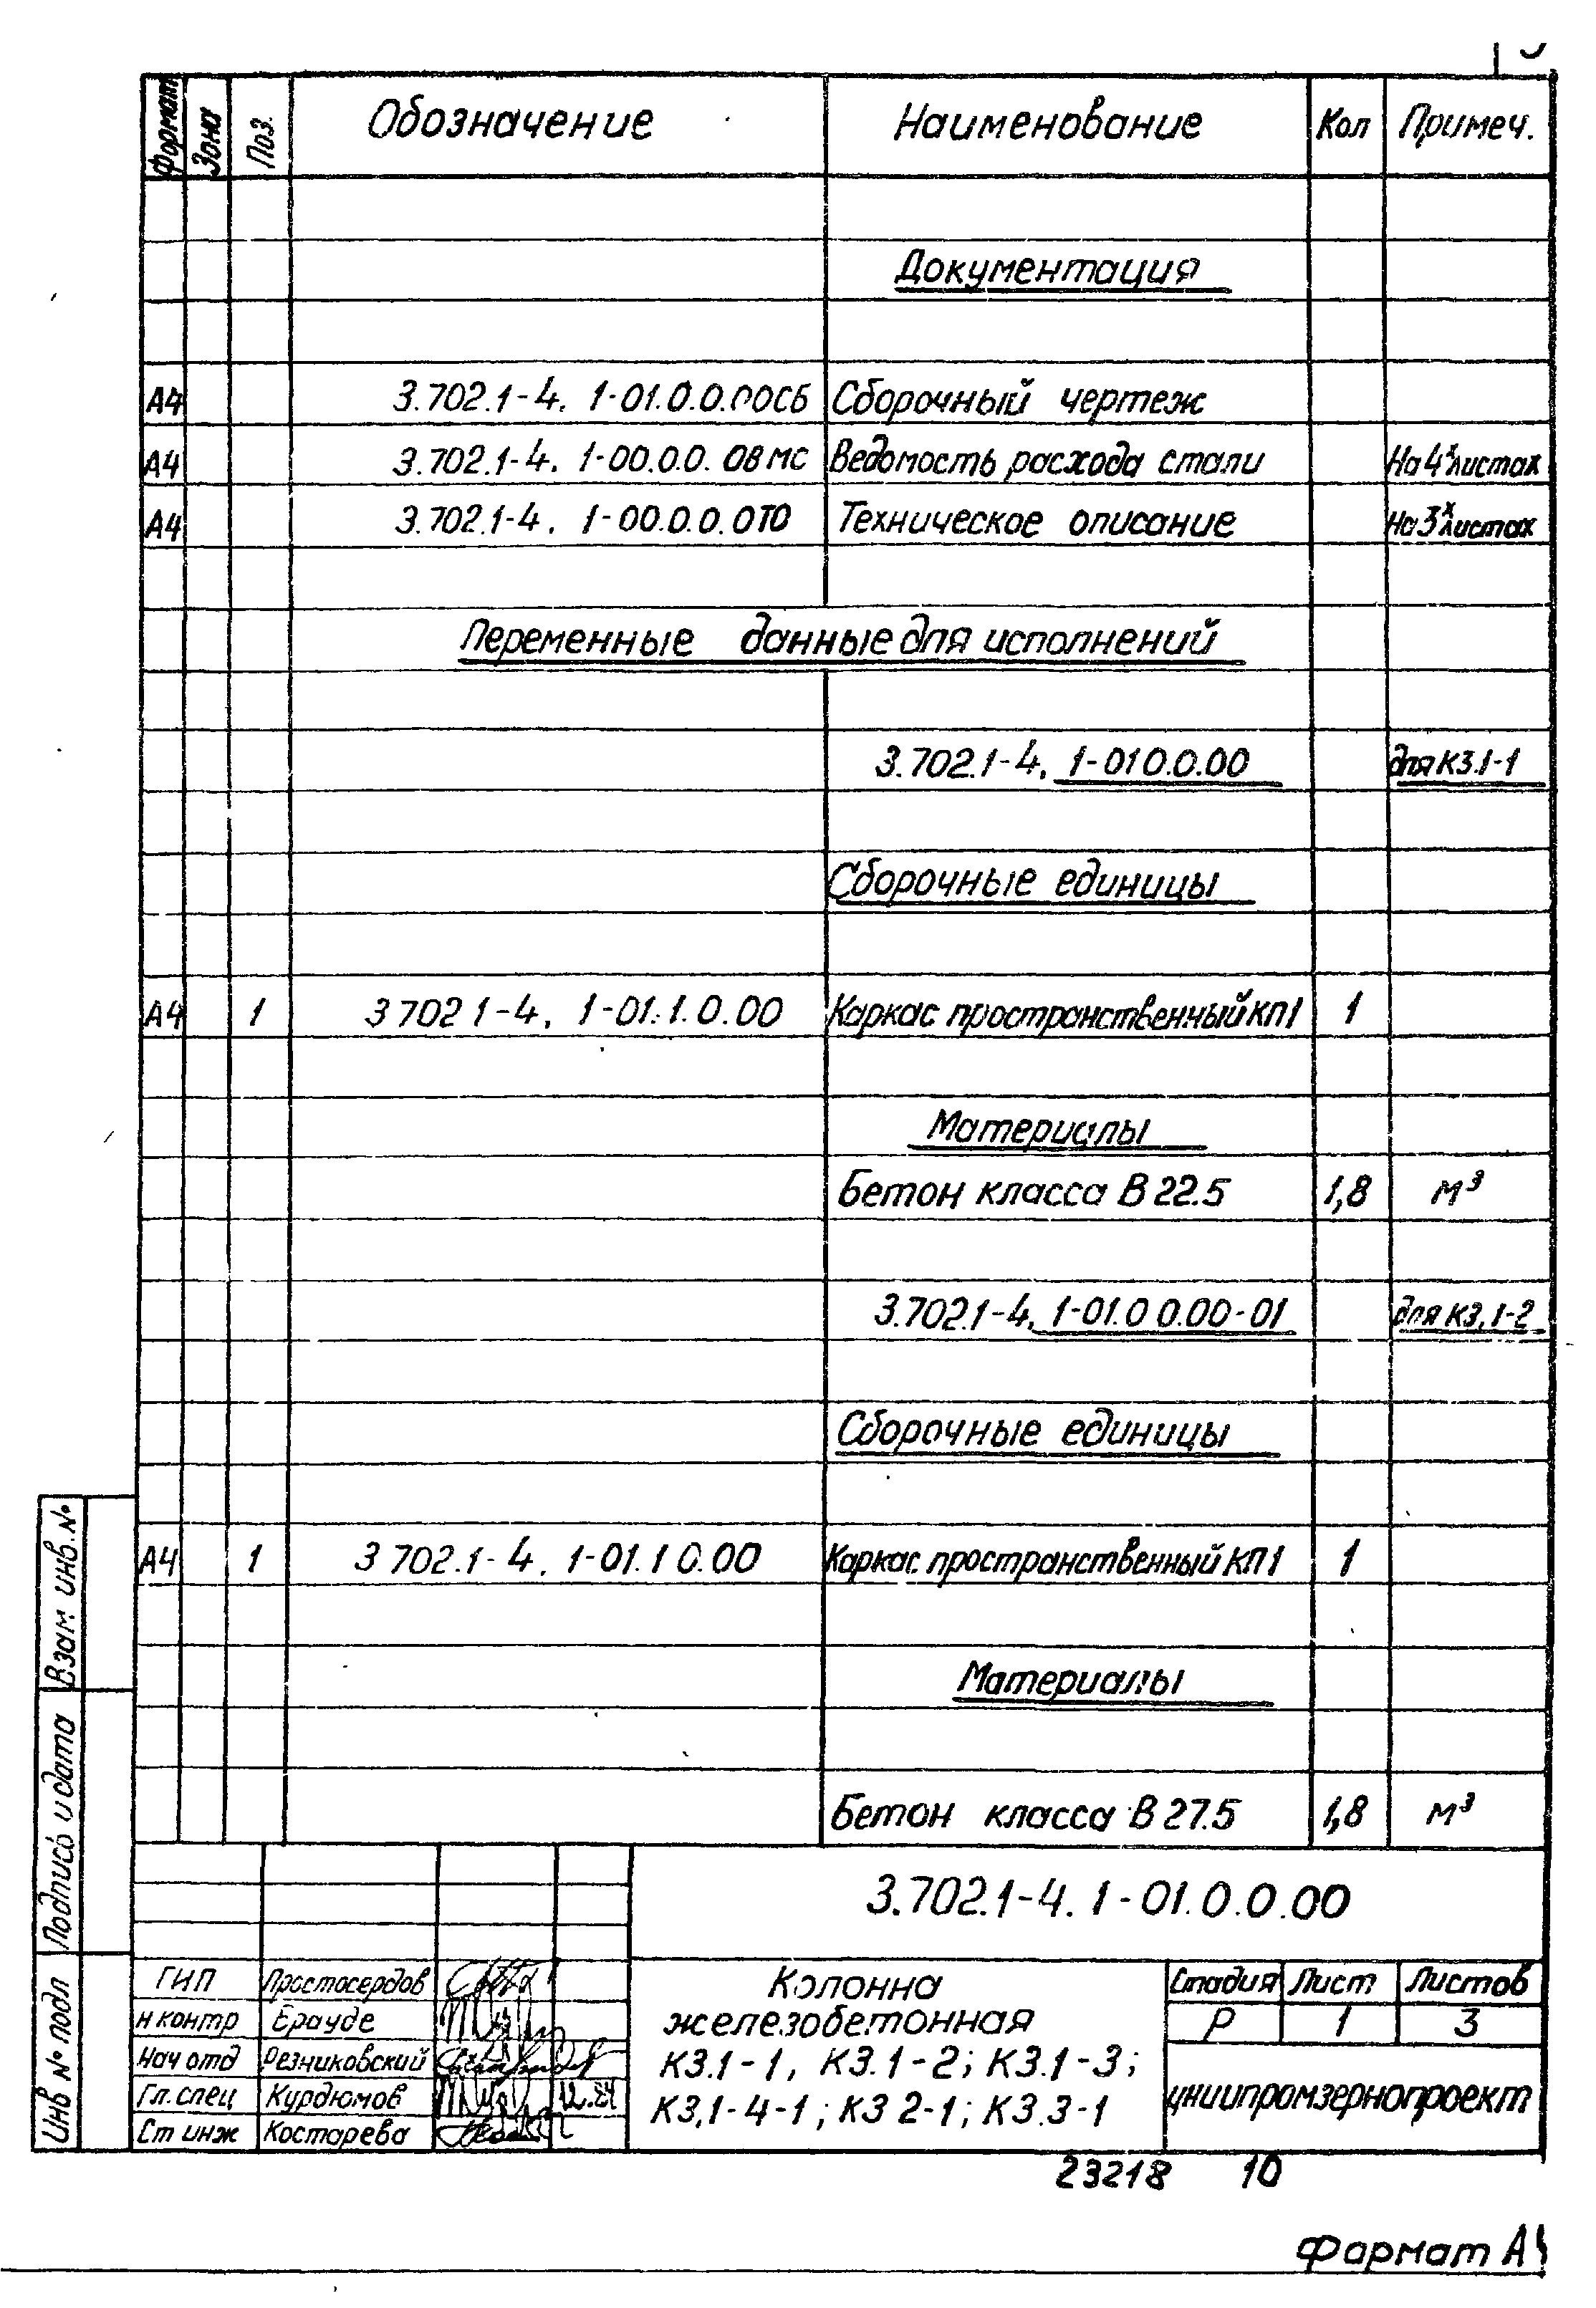 Формат Зона Поз. Обозначение Наименование Кол Примеч.
Документация
А4 3.702.1-4. 1-01.0.0.00СБ Сборочный чертеж
А4 3.702.1-4. 1-00.0.0.08МС Ведомость расхода стали На 4х листах
А4 3.702.1-4. 1-00.0.0.0ТО Техническое описание На 3х листах
Переменные данные для исполнений
3.702.1-4. 1-01 0.0.00 для К3.1-1
Сборочные единицы
А4 1 3 702 1-4. 1-01.1.0.00 Каркас пространственный КП1 1
Материалы
Бетон класса В 22.5 1,8 м³
3.702.1-4. 1-01.0 0.00-01 для К3.1-2
Сборочные единицы
А4 1 3 702.1-4. 1-01.1 0.00 Каркас пространственный КП1 1
Материалы
Бетон класса В 27.5 1,8 м³
Взам инв. №
Подпись и дата
Инв № подл
3.702.1-4. 1-01.0.0.00
ГИП Простосердов
н контр Брауде
Нач отд Резниковский
Гл. спец Курдюмов
Ст инж Костарева
Колонна
железобетонная
К3.1-1, К3.1-2; К3.1-3;
К3,1-4-1; К3 2-1; К3.3-1
Стадия Лист Листов
Р 1 3
цниипромзернопроект
23218 10
Формат А